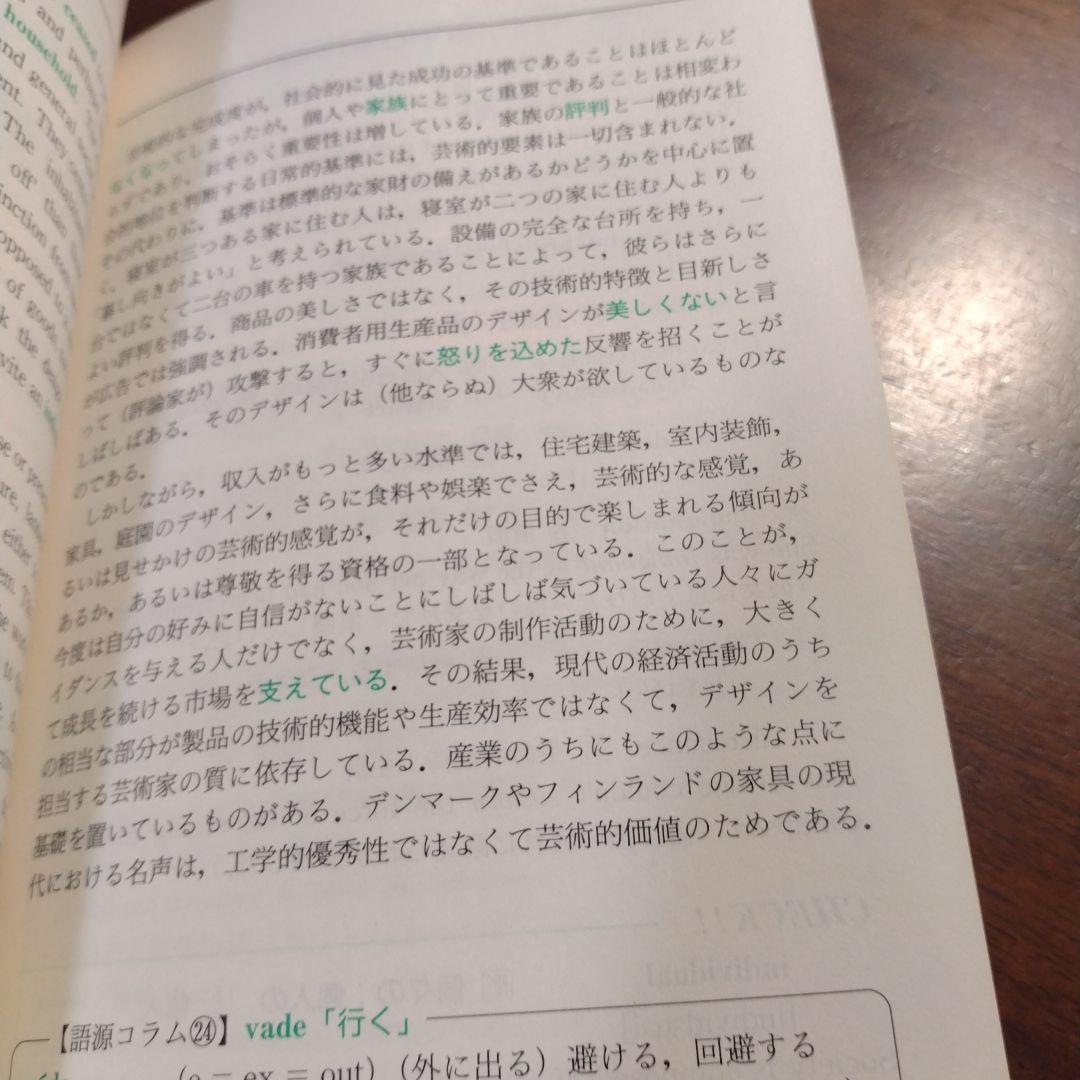 household
and general
ent. They
The
off than
inction
opposed to
of good
芸術的な完成度が，社会的に見た成功の基準であることはほとんど
なくなってしまったが，個人や家族にとって重要であることは相変わ
らずであり，おそらく重要性は増している．家族の評判と一般的な社
会的地位を判断する日常的基準には，芸術的要素は一切含まれない．
その代わりに，基準は標準的な家財の備えがあるかどうかを中心に置
く．寝室が三つある家に住む人は，寝室が二つの家に住む人よりも
「暮し向きがよい」と考えられている．設備の完全な台所を持ち，一
台ではなくて二台の車を持つ家族であることによって，彼らはさらに
よい評判を得る．商品の美しさではなく，その技術的特徴と目新しさ
が広告では強調される．消費者用生産品のデザインが美しくないと言
って（評論家が）攻撃すると，すぐに怒りを込めた反響を招くことが
しばしばある．そのデザインは（他ならぬ）大衆が欲しているものな
のである．
しかしながら，収入がもっと多い水準では，住宅建築，室内装飾，
家具，庭園のデザイン，さらに食料や娯楽でさえ，芸術的な感覚，あ
るいは見せかけの芸術的感覚が，それだけの目的で楽しまれる傾向が
あるか，あるいは尊敬を得る資格の一部となっている．このことが，
今度は自分の好みに自信がないことにしばしば気づいている人々にガ
イダンスを与える人だけでなく，芸術家の制作活動のために，大きく
て成長を続ける市場を支えている．その結果，現代の経済活動のうち
の相当な部分が製品の技術的機能や生産効率ではなくて，デザインを
担当する芸術家の質に依存している．産業のうちにもこのような点に
基礎を置いているものがある．デンマークやフィンランドの家具の現
代における名声は，工学的優秀性ではなくて芸術的価値のためである．
【語源コラム㉔】vade「行く」
(e = ex = out)（外に出る）避ける，回避する